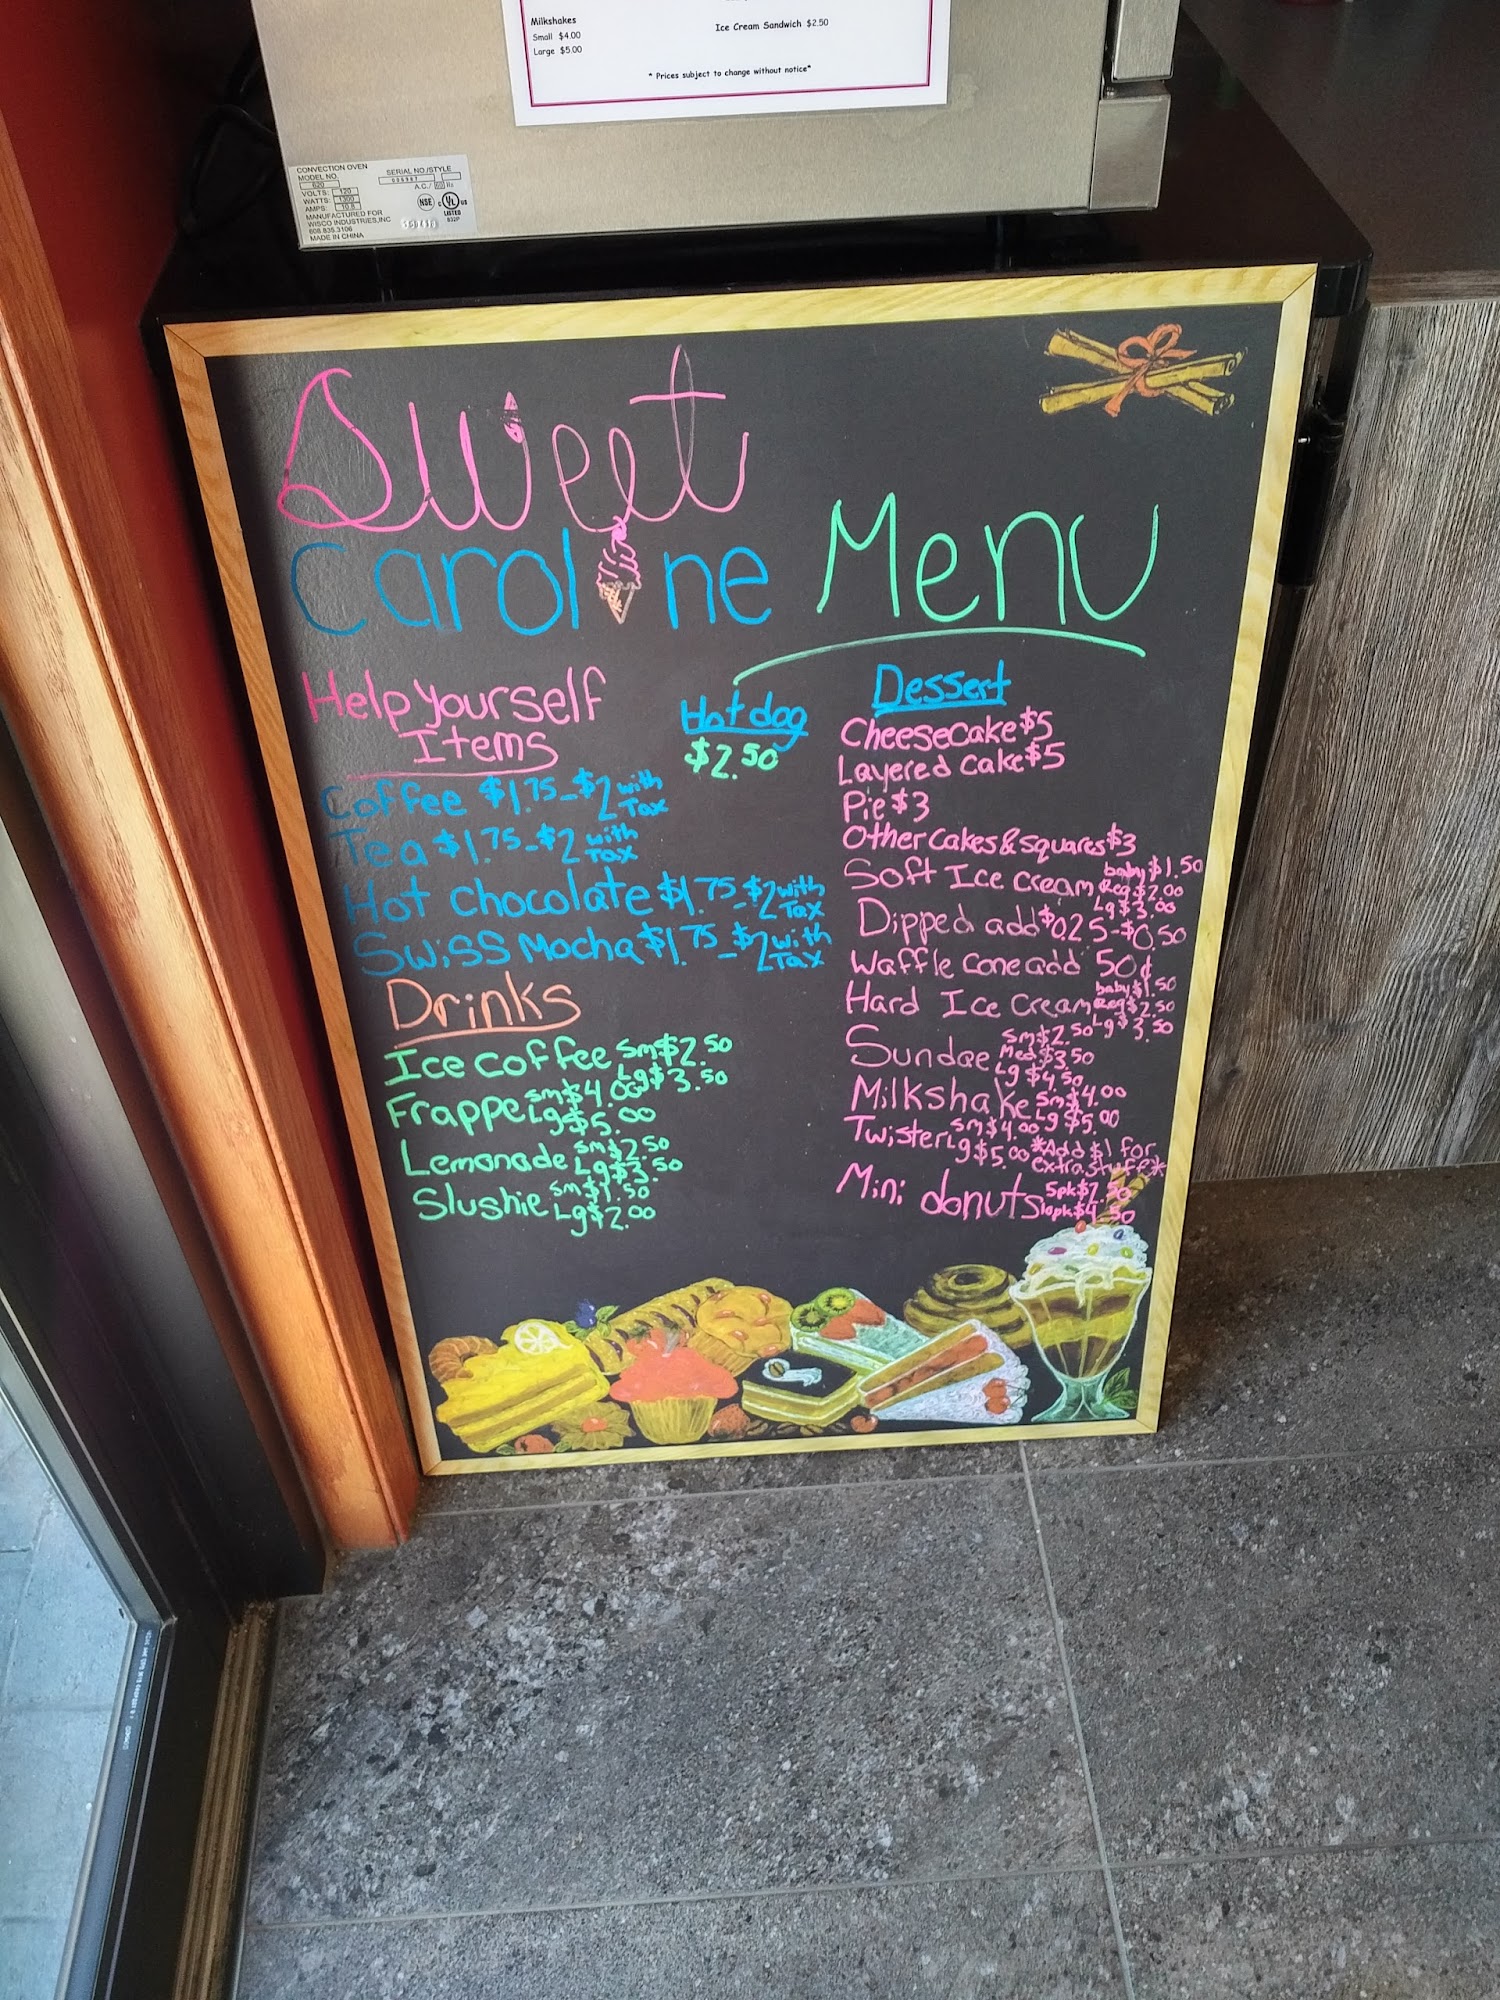 Milkshakes
Small $4.00
Large $5.00
Ice Cream Sandwich $2.50
* Prices subject to change without notice*
CONVECTION OVEN
MODEL NO.
620
SERIAL NO./STYLE
VOLTS: 120
A.C./ 60 Hz
WATTS: 1300
AMPS: 10.8
MANUFACTURED FOR
WISCO INDUSTRIES,INC
608.835.3106
MADE IN CHINA
NSF
C UL US
LISTED
932P
Sweet
Caroline Menu
Help Yourself
Items
Coffee $1.75-$2 with Tax
Tea $1.75-$2 with Tax
Hot Chocolate $1.75-$2 with Tax
Swiss Mocha $1.75-$2 with Tax
Drinks
Ice Coffee sm $2.50
Lg $3.50
Frappe sm $4.00
Lg $5.00
Lemonade sm $2.50
Lg $3.50
Slushie sm $1.50
Lg $2.00
Hot dog
$2.50
Dessert
Cheesecake $5
Layered Cake $5
Pie $3
Other Cakes & squares $3
Soft Ice Cream baby $1.50
Reg $2.00
Lg $3.00
Dipped add $0.25-$0.50
Waffle Cone add 50¢
Hard Ice Cream baby $1.50
Reg $2.50
Lg $3.50
Sundae sm $2.50
Med $3.50
Lg $4.50
Milkshake sm $4.00
Lg $5.00
Twister sm $4.00
Lg $5.00 *Add $1 for
extra stuff*
Mini donuts 5pk $2.50
10pk $4.50